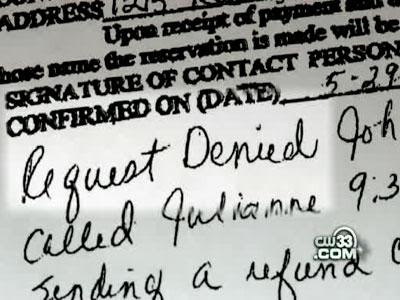 ADDRESS
Upon receipt of payment and
hose name the reservation is made will be
SIGNATURE OF CONTACT PERSON
CONFIRMED ON (DATE) 5-29
Request Denied Joh
Called Julianne 9:3
sending a refund
CW33
.COM